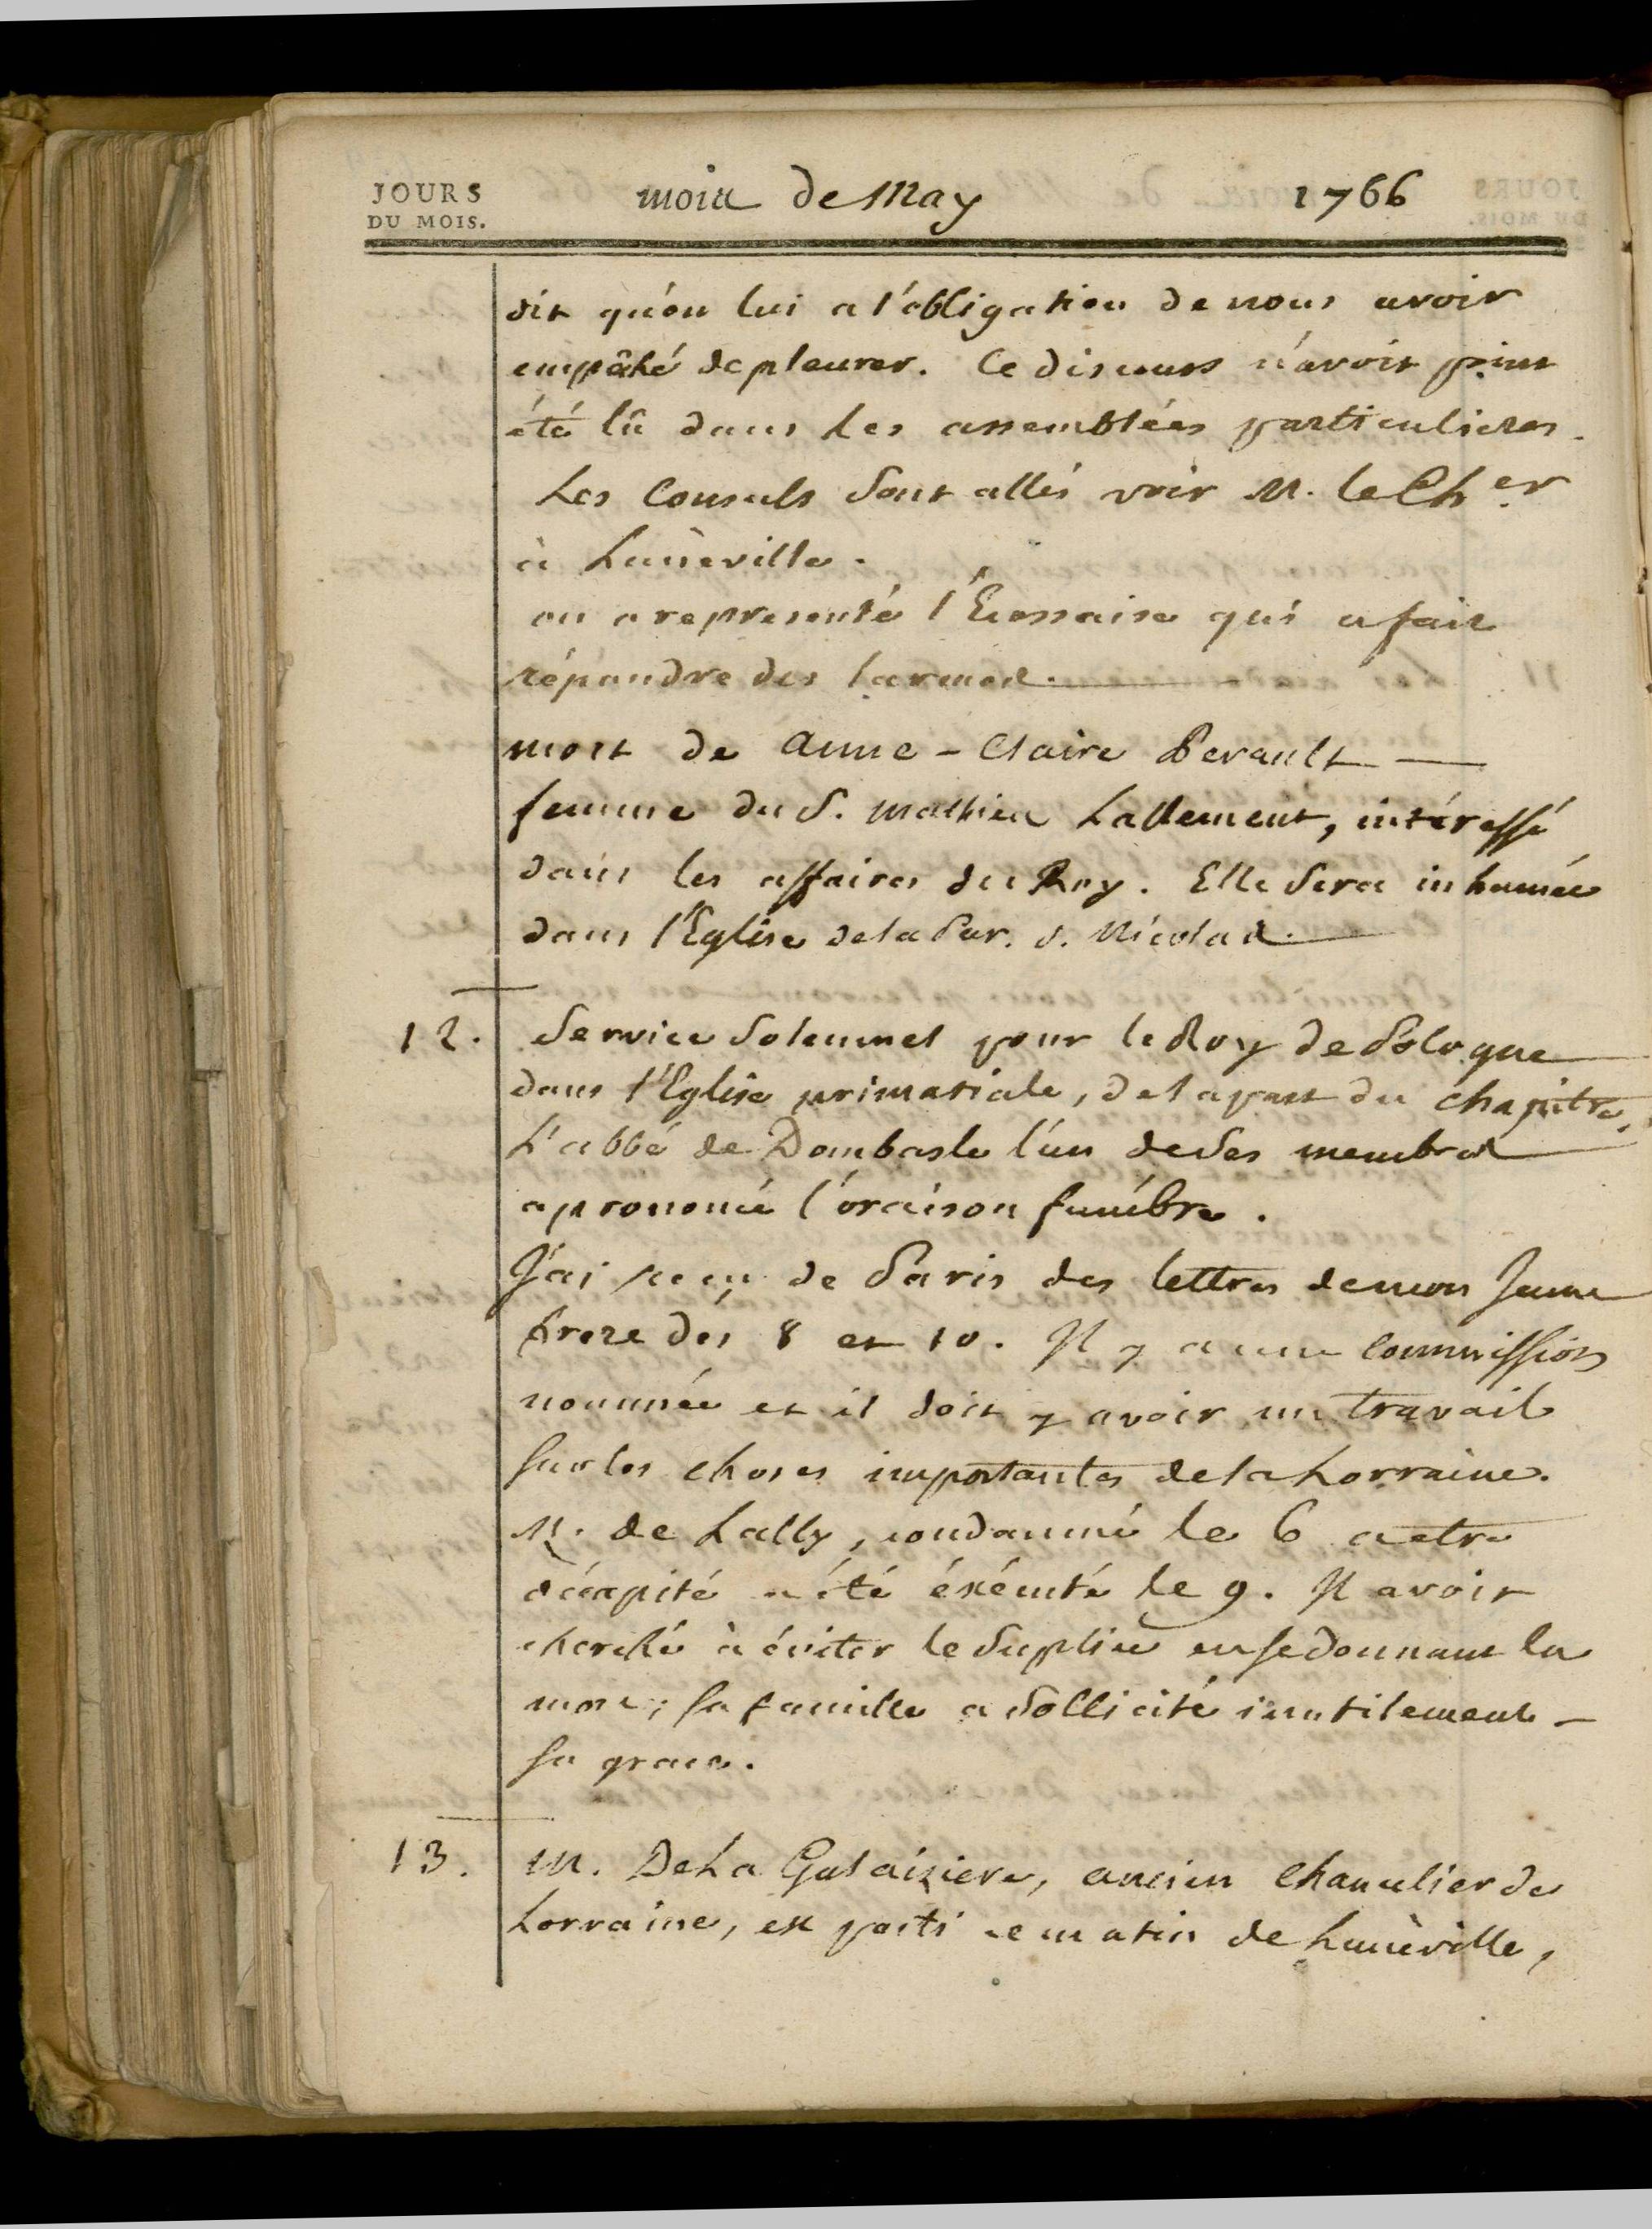 JOURS
DU MOIS.
mois de May 1766
dit qu'on lui a l'obligation de nous avoir
empâché de pleurer. Ce discours n'avoit point
été lû dans les assemblées particulieres.
Les Consuls sont allés voir M. le Cher
à Lunéville.
on a representé l'Ecossaise qui a fait
répandre des larmes.
mort de Anne-Claire Perault
femme du S. Mathieu Lallement, intéressé
dans les affaires du Roy. Elle sera inhumée
dans l'Eglise de la Par. S. Nicolas.
12. Service solemnel pour le Roy de Pologne
dans l'Eglise primatiale, de la part du chapitre.
L'abbé de Dombasle l'un de ses membres
a prononcé l'oraison funébre.
J'ai reçu de Paris des lettres de mon Jeune
frere des 8 et 10. Il y a une commission
nommée et il doit y avoir un travail
sur les choses importantes de la Lorraine.
M. de Lally, condamné le 6 a etre
décapité a été éxécuté le 9. Il avoit
cherché à éviter le suplice en se donnant la
mort; sa famille a sollicité inutilement
sa grace.
13. M. De La Galaiziere, ancien Chancelier de
Lorraine, est parti ce matin de Lunéville,